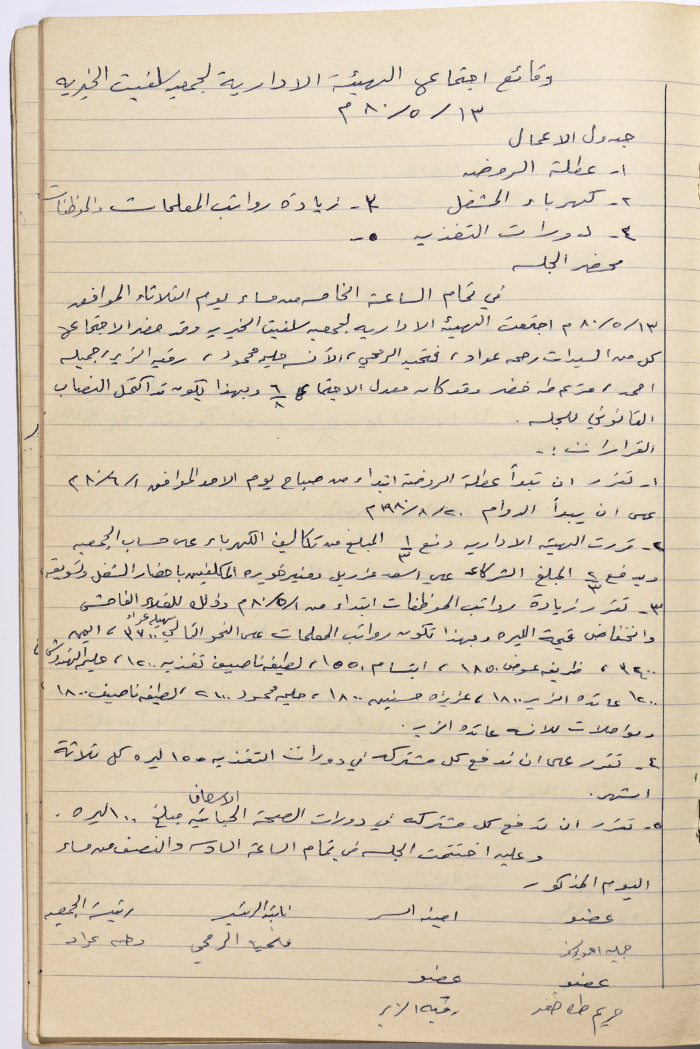 وقائع اجتماع الهيئة الادارية لجمعيه سلفيت الخيريه
١٣/٥/٨٠م
جدول الاعمال
١- عطلة الروضه
٢- كهرباء المشغل ٣- زيادة رواتب المعلمات والموظفات
٤- دورات التغذيه ٥-
محضر الجلسه
في تمام الساعة الخامسه من مساء يوم الثلاثاء الموافق
١٣/٥/٨٠م اجتمعت الهيئة الاداريه لجمعيه سلفيت الخيريه وقد حضر الاجتماع
كل من السيدات رحمه عواد، فتحيه الرمحي، الآنسه حليمه محمود، رقيه الزير، جميله
احمد، مريم طه خضر وقد كان معدل الاجتماع ٦/٨ وبهذا يكون قد اكتمل النصاب
القانوني للجلسه.
القرارات :-
١- تقرر ان تبدأ عطلة الروضة ابتداء من صباح يوم الاحد الموافق ١/٦/٨٠م
على ان يبدأ الدوام ٢٠/٨/١٩٨٠م
٢- قررت الهيئة الاداريه دفع ١/٣ المبلغ من تكاليف الكهرباء على حساب الجمعيه
ويدفع ٢/٣ المبلغ الشركاء على اسعد عزريل ومنير خويره المكلفين باحضار الشغل وتسويقه
٣- تقرر زيادة رواتب الموظفات ابتداء من ١/٥/٨٠م وذلك للغلاء الفاحش
وانخفاض قيمة الليره وبهذا تكون رواتب المعلمات على النحو التالي ٣٧٠٠،
٣٤٠٠، ظريفه عوض ١٨٥٠، ابتسام ١٥٥٠، لطيفه ناصيف تغذيه ١٢٠٠، حليمه
١٢٠٠ عائده الزير ١٨٠٠، عزيزه حسنين ١٨٠٠، حليمه محمود ٢١٠٠، لطيفه ناصيف ١٨٠٠
ومواصلات للانسه عائده الزير.
٤- تقرر على ان تدفع كل مشتركه في دورات التغذيه ١٥٠ ليره كل ثلاثة
اشهر.
الاسعاف
٥- تقرر ان تدفع كل مشتركه في دورات الصحة مبلغ ١٠٠ ليره.
وعليه اختتمت الجلسه في تمام الساعة السادسه والنصف من مساء
اليوم المذكور
عضو امينه السر نائبة الرئيسه رئيسة الجمعيه
جميله احمد فتحيه الرمحي رحمه عواد
عضو عضو
مريم طه خضر رقيه الزير